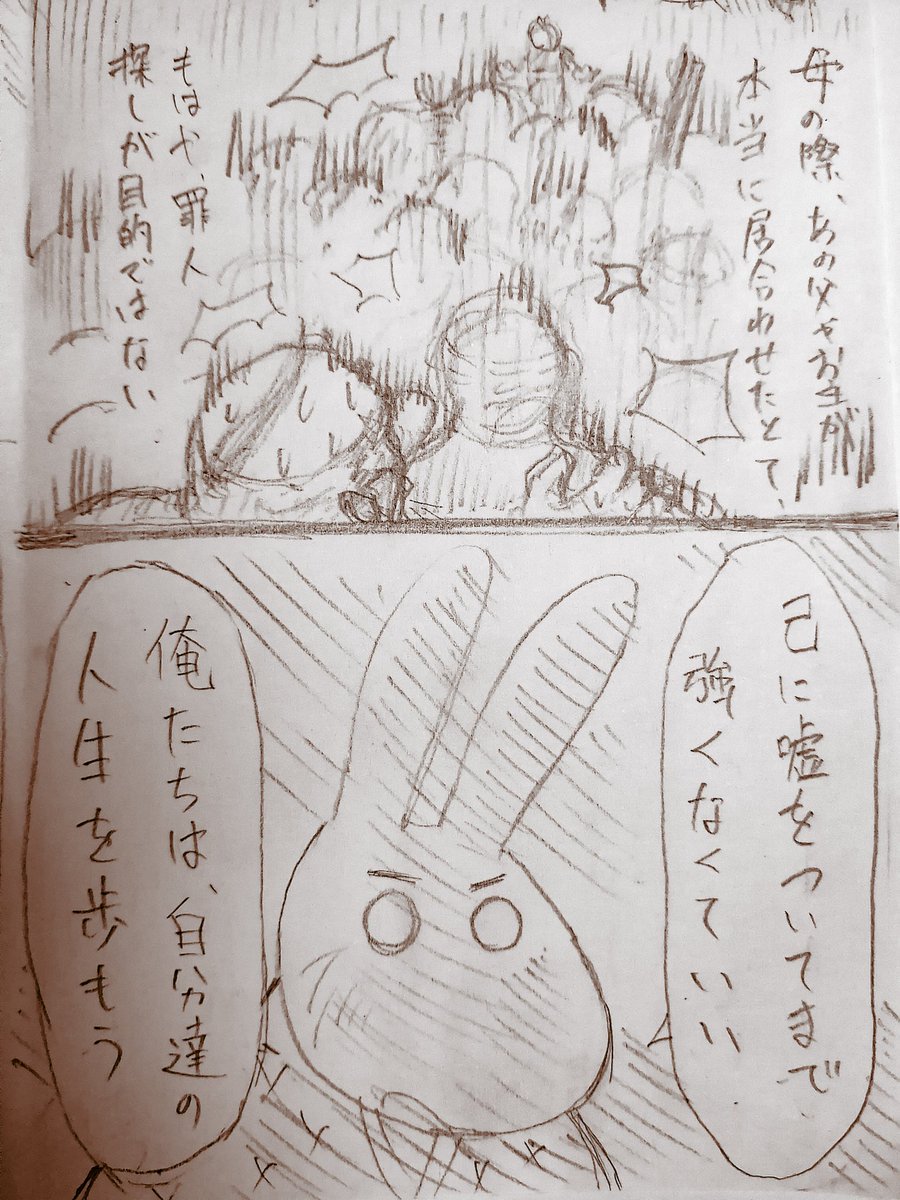 母の際、あの父やお主が
本当に居合わせたとて、
もはや、罪人
探しが目的ではない
己に嘘をついてまで
強くなくていい
俺たちは、自分達の
人生を歩もう